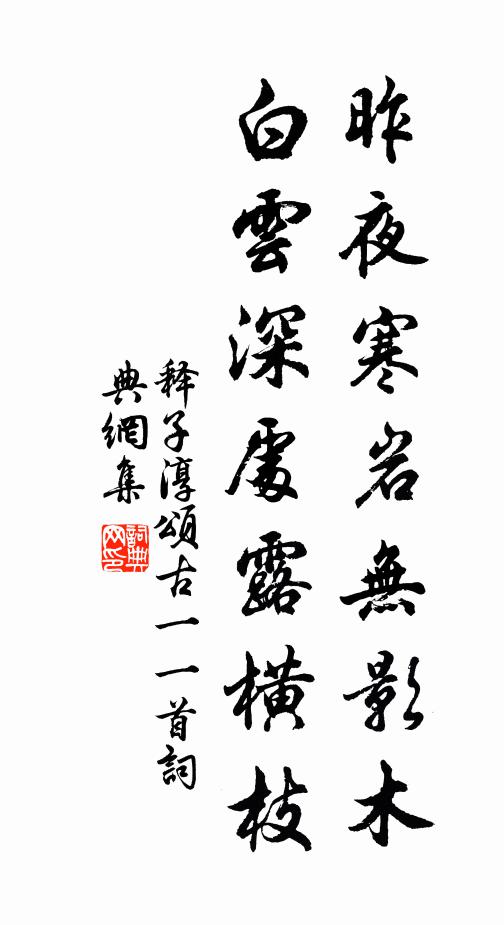 昨夜寒岩無影木
白雲深處露橫枝
释子淳頌古一一首詞
典網集
詞典
网印